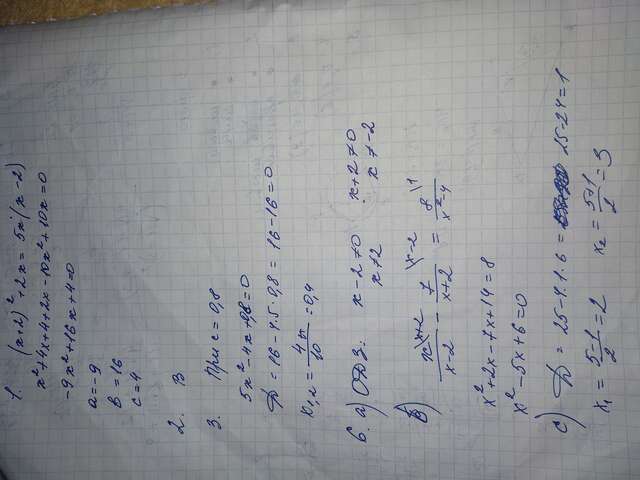 1. (x+2)² + 2x = 5x(x-2)
x²+4x+4+2x-10x²+10x=0
-9x²+16x+4=0
a=-9
b=16
c=4
2. B
3. При c=0,8
5x²-4x+0,8=0
D = 16-4·5·0,8 = 16-16=0
x₁,₂ = 4/10 = 0,4
6. a) ОДЗ: x-2≠0 x+2≠0
x≠2 x≠-2
b) x\x+2/x-2 - 7\x-2/x+2 = 8\1/x²-4
x²+2x-7x+14=8
x²-5x+6=0
c) D = 25-4·1·6 = 25-24=1
x₁ = 5-1/2 = 2 x₂ = 5+1/2 = 3